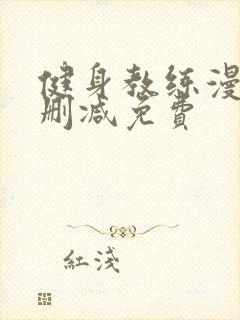 健身教练漫
删减免费
红浅